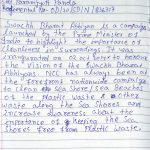 Paramjyoti Panda
Swachh Bharat Abhiyan is a campaign
launched by the Prime Minister of
India to highlight the importance of
cleanliness & Surroundings. It was
inaugurated on 02 october to honour
the Vision of the Swachh Bharat
Abhiyan. NCC has always been at
the forefront nationwide campaign
on clean sea shore / sea beaches
of the Plastic waste & other
waste along the sea shores and
increase awareness about the
importance of keeping the sea
shores free from Plastic waste.